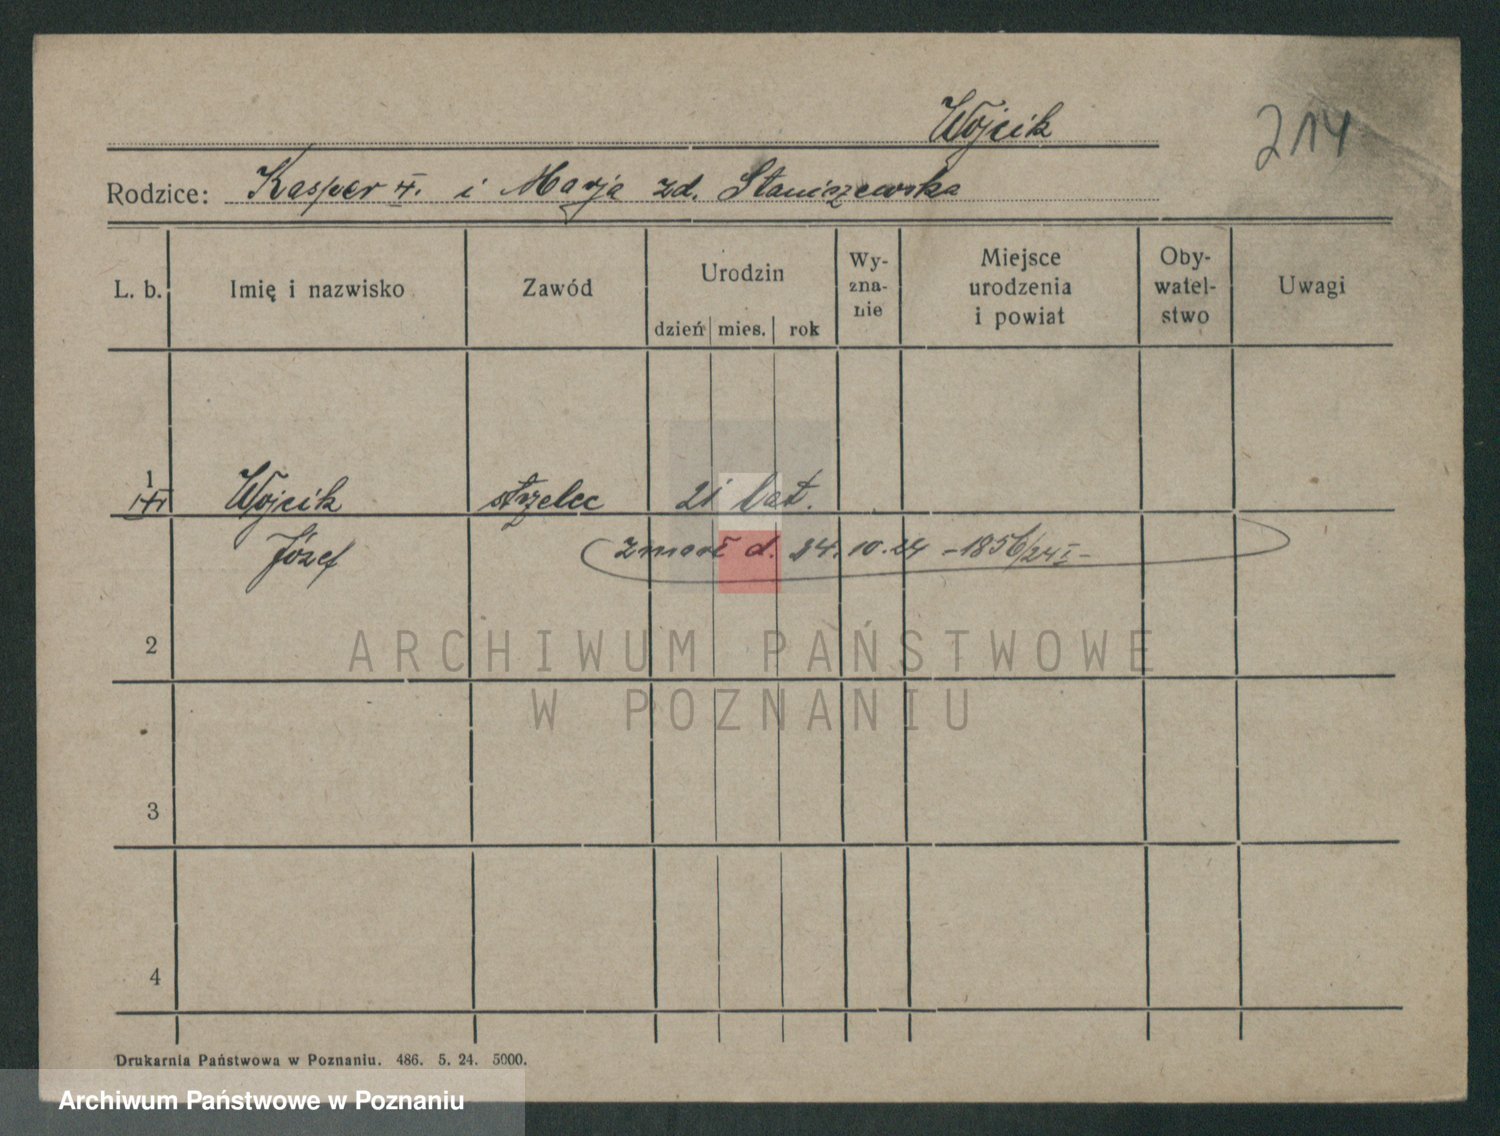 Wojcik
214
Rodzice: Kasper i Marja zd. Staniszewska
L. b. Imię i nazwisko Zawód Urodzin Wy-zna-nie Miejsce urodzenia i powiat Oby-watel-stwo Uwagi
dzień mies. rok
1 Wojcik strzelec 21 lat.
Józef zmarł d. 24.10.24 -1856/24
2
ARCHIWUM PAŃSTWOWE
W POZNANIU
3
4
Drukarnia Państwowa w Poznaniu. 486. 5. 24. 5000.
Archiwum Państwowe w Poznaniu